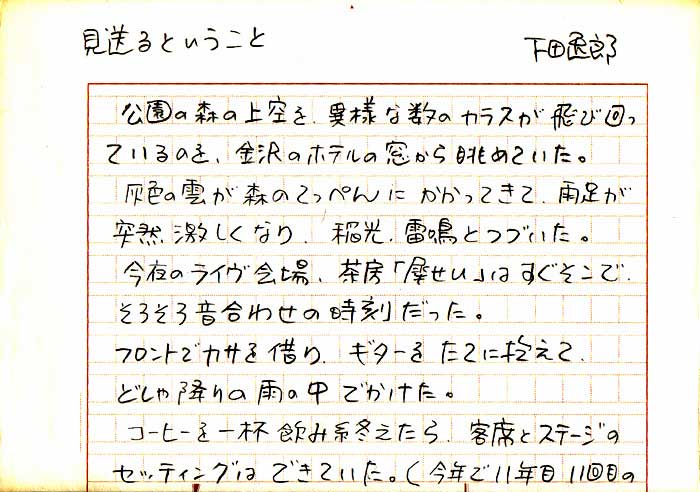 見送るということ 下田逸郎
公園の森の上空を、異様な数のカラスが飛び回っ
ているのを、金沢のホテルの窓から眺めていた。
灰色の雲が森のてっぺんにかかってきて、雨足が
突然激しくなり、稲光、雷鳴とつづいた。
今夜のライヴ会場、茶房「犀せい」はすぐそこで、
そろそろ音合わせの時刻だった。
フロントでカサを借り、ギターをたてに抱えて、
どしゃ降りの雨の中でかけた。
コーヒーを一杯飲み終えたら、客席とステージの
セッティングはできていた。(今年で11年目11回目の